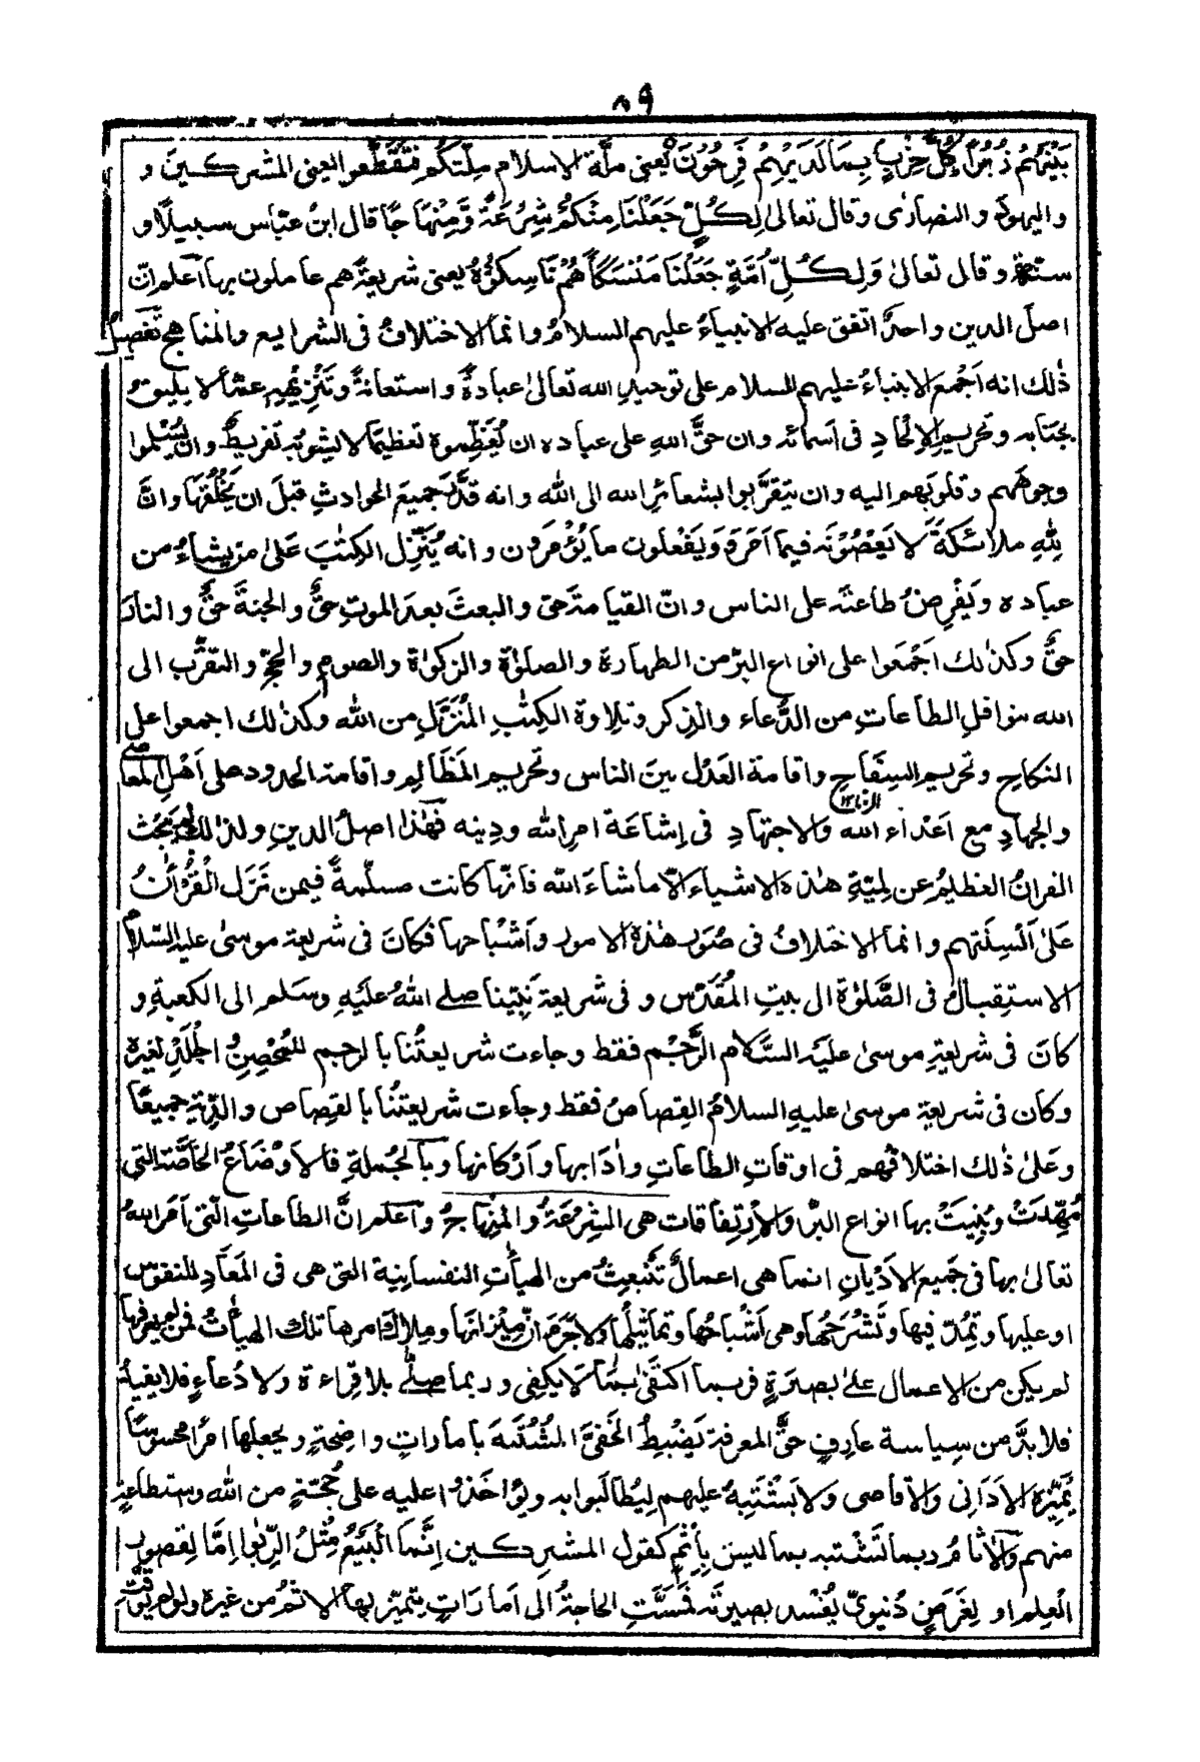 ٨٩
بَيْنَهُمْ زُبُرًا كُلُّ حِزْبٍ بِمَا لَدَيْهِمْ فَرِحُوْنَ يعنى ملّة الاسلام ملّتكم فتقطّعوا يعنى المشركين و
واليهود والنصارٰى وقال تعالىٰ لِكُلٍّ جَعَلْنَا مِنْكُمْ شِرْعَةً وَّمِنْهَاجًا قال ابنُ عبّاس سبيلًا و
سنّة وقال تعالىٰ وَلِكُلِّ اُمَّةٍ جَعَلْنَا مَنْسَكًا هُمْ نَاسِكُوْهُ يعنى شريعةً هم عاملون بها اعلم انّ
اصلَ الدين واحدٌ اتفق عليه الانبياءُ عليهم السلامُ وانما الاختلافُ فى الشرايع والمناهج تفصيلُ
ذٰلك انه اَجْمَعَ الانبياءُ عليهم السلام على توحيدِ الله تعالىٰ عبادةً واستعانةً وتَنْزِيْهِهِ عمّا لا يليق
بجنابه وتحريم الاِلْحادِ فى اَسمائه وان حقَّ اللهِ على عباده ان يُعَظِّموه تعظيمًا لا يشوبُه تفريطٌ وان يُسْلِموا
وجوهَهم وقلوبَهم اليه وان يتقرَّبوا بشعائرِ الله الى الله وانه قدَّرَ جميعَ الحوادثِ قبلَ ان يَخْلُقَهَا وانَّ
لِلّٰهِ ملائكةً لا يَعْصُوْنَه فيما اَمَرَه وَيَفْعَلون ما يُؤْمَرُون وانه يُنَزِّل الكتٰبَ عَلىٰ من يشاءُ من
عباده ويَفْرِضُ طاعتَه على الناس وانّ القيامة حق والبعثَ بعدَ الموتِ حقٌّ والجنةَ حقٌّ والنارَ
حقٌّ وكذٰلك اَجْمَعوا على انواع البرّ من الطهارة والصلوٰة والزكوٰة والصوم والحجِّ والتقرُّب الى
الله بنوافلِ الطاعاتِ من الدُّعاء والذكر وتلاوة الكِتٰبِ المُنَزَّلِ من الله وكذٰلك اجمعوا على
النكاحِ وتحريم السِفَاحِ واقامة العَدْل بينَ الناس وتحريم المَظَالِم واقامة الحدود على اَهْلِ المعاصى
الزنا ١٢
والجهادِ مع اَعْدآءِ الله والاجتهادِ فى اِشاعَة امرِ الله ودِينه فهٰذا اصلُ الدينِ ولذٰلك لم يبحث
القرانُ العظيمُ عن لِمّيّةِ هٰذه الاشياء الّا ما شاءَ الله فانّها كانت مسلّمةً فيمن نَزَل القُرْاٰنُ
عَلىٰ اَلْسِنَتِهم وانما الاختلافُ فى صُوَر هٰذه الامور واَشْبَاحها فكانَ فى شريعة موسىٰ عليه السّلام
الاستقبالُ فى الصَّلوٰة الى بيتِ المُقَدَّس وفى شريعة نَبِيّنا صلے اللهُ عليه وسلم الى الكعبةِ و
كانَ فى شريعةِ موسىٰ عليه السَّلام الرَّجْم فقط وجاءت شريعتُنا بالرجم للمُحْصِنِ الجَلْدِ لغيره
وكان فى شريعة موسىٰ عليهِ السلامُ القِصاصُ فقط وجاءت شريعتُنا بالقِصاص والدِّيَة جميعًا
وعَلىٰ ذٰلك اختلافُهم فى اوقاتِ الطاعاتِ واٰدَابها واَرْكانِها وبالجُملةِ فالاَوْضَاعُ الخَاصَّة التى
مُهِّدَتْ وبُنِيَتْ بها انواع البرّ والاِرْتِفاقات هى الشِرْعَةُ والمِنْهاجُ واَعلم انَّ الطاعاتِ التى اَمَرَ اللهُ
تعالىٰ بها فى جَميع الاَدْيانِ انما هى اعمالٌ تَنْبَعِثُ من الهيأٰتِ النفسانية التى هى فى المَعَادِ للنفوس
او عليها وتُمِدّ فيها وتَشْرَحُها وهى اَشْباحُها وتماثيلُها ولا جَرَمَ انّ مِيْزانَها ومِلاكَ امرها تلك الهيأٰتُ فمن لم يعرفها
لم يكن من الاعمال علىٰ بصيرةٍ فربما اكتفىٰ بما لا يكفى وربما صلّے بلا قِراءة ولا دُعاءٍ فلا يفيدُه
فلا بدَّ من سِياسة عارِفٍ حقَّ المعرفة يَضْبِطُ الخَفىَّ المُشْتَبِهَ بامَاراتٍ واضحةٍ ويجعلها امرًا محسوسًا
يُمَيِّزه الاَدَانى والاقاصى ولا يَشْتَبِهُ عليهم لِيُطالَبوا به ويُؤاخَذوا عليه على حُجّةٍ من الله واستطاعةٍ
منهم والاٰثامُ ربما تَشْتبه بما ليس بِاِثْمٍ كقول المشركين اِنَّمَا الْبَيْعُ مِثْلُ الرِّبٰوا اِمَّا لقصورِ
العِلم او لِغَرَضٍ دُنيوىّ يُفْسد بصيرتَه فَمَسَّتِ الحاجةُ الى اَمَارَاتٍ يتميّز بها الاثمُ من غيره ولو لم يوقّت